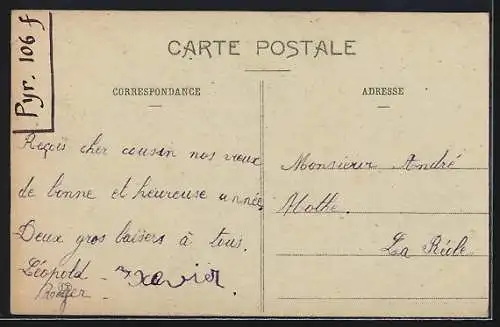 Pyr. 106 f
CARTE POSTALE
CORRESPONDANCE
ADRESSE
Reçois cher cousin nos vœux
de bonne et heureuse année
Deux gros baisers à tous.
Léopold - Xavier.
Roger
Monsieur André
La Réole